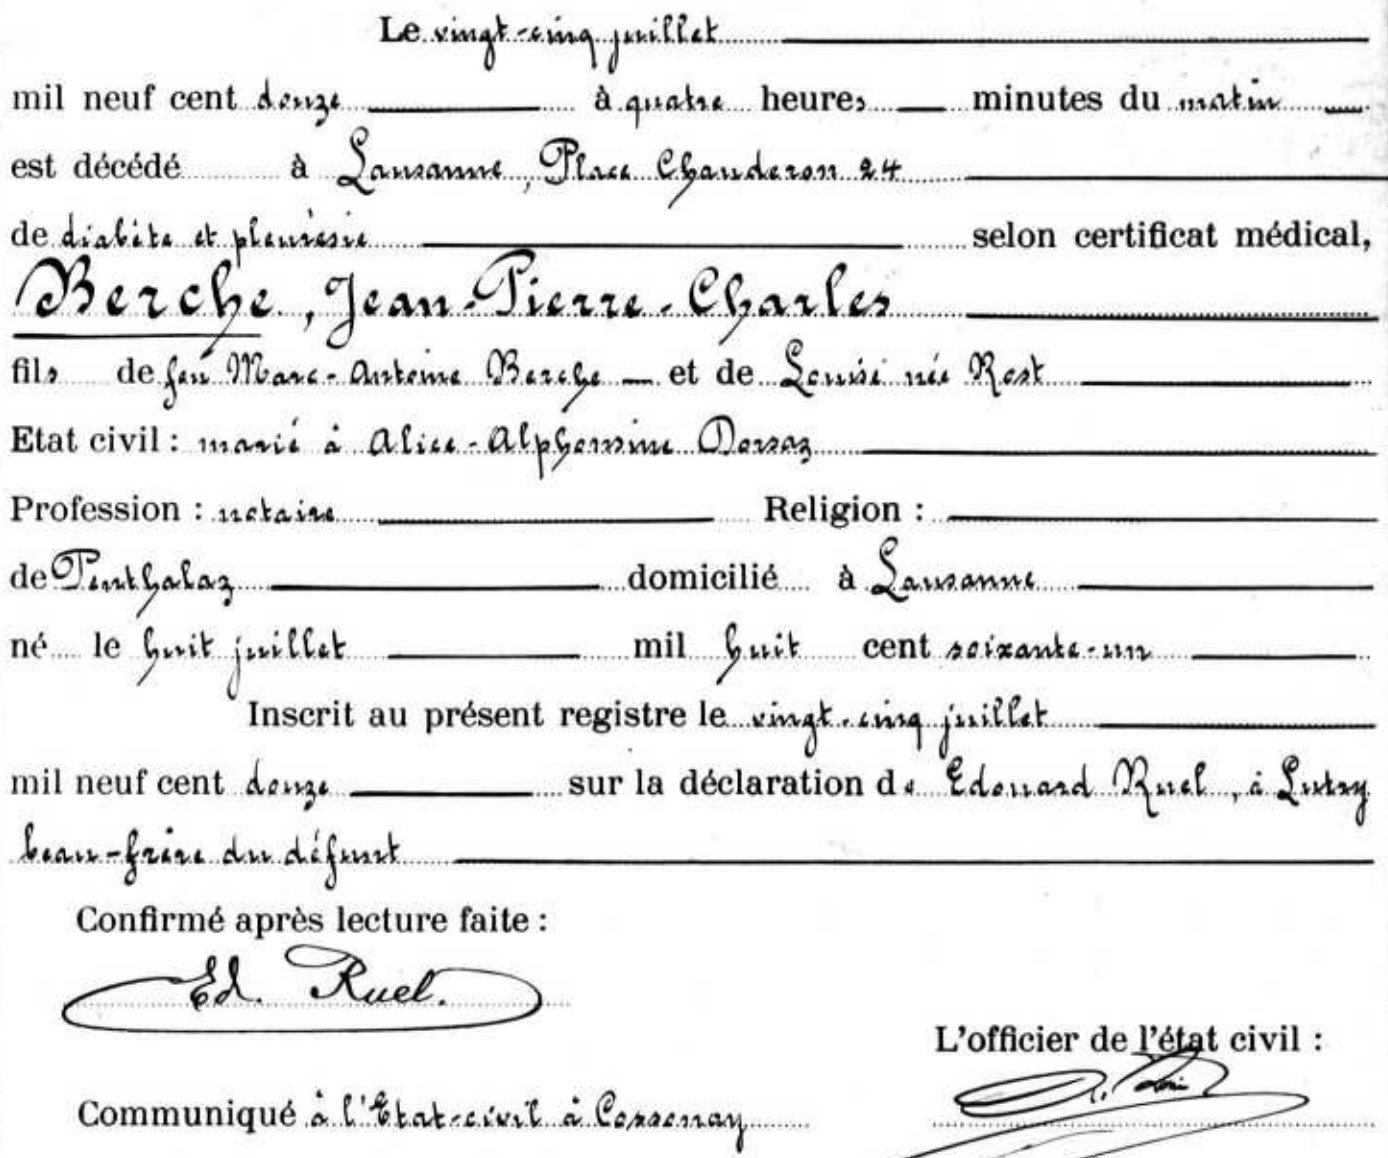 Le vingt-cinq juillet
mil neuf cent douze à quatre heures minutes du matin
est décédé à Lausanne, Place Chauderon 24
de diabète et pleurésie selon certificat médical,
Berche, Jean-Pierre-Charles
fils de feu Marc-Antoine Berche et de Louise née Rost
Etat civil : marié à Alice-Alphonsine Dorsaz
Profession : notaire Religion :
de Penthalaz domicilié à Lausanne
né le huit juillet mil huit cent soixante-un
Inscrit au présent registre le vingt-cinq juillet
mil neuf cent douze sur la déclaration de Edouard Ruel, à Lutry
beau-frère du défunt
Confirmé après lecture faite :
Ed. Ruel.
L'officier de l'état civil :
Communiqué à l'Etat-civil à Cossonay